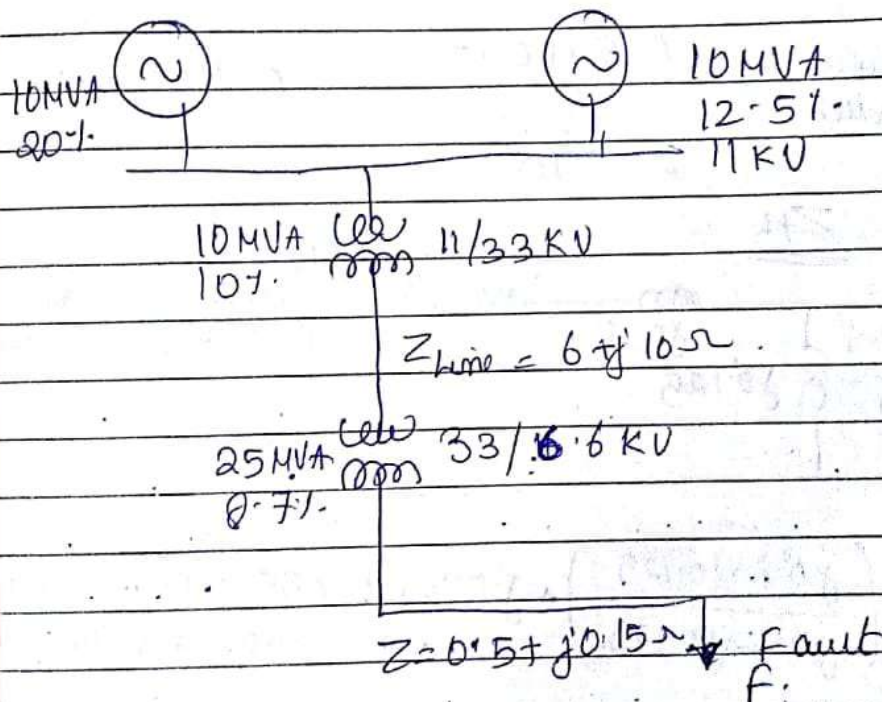 10MVA
20%.
10MVA
12.5%.
11KV
10MVA
10%.
11/33KV
ZLine = 6+j10Ω.
25MVA
33/6.6KV
Z=0.5+j0.15Ω
Fault
F.